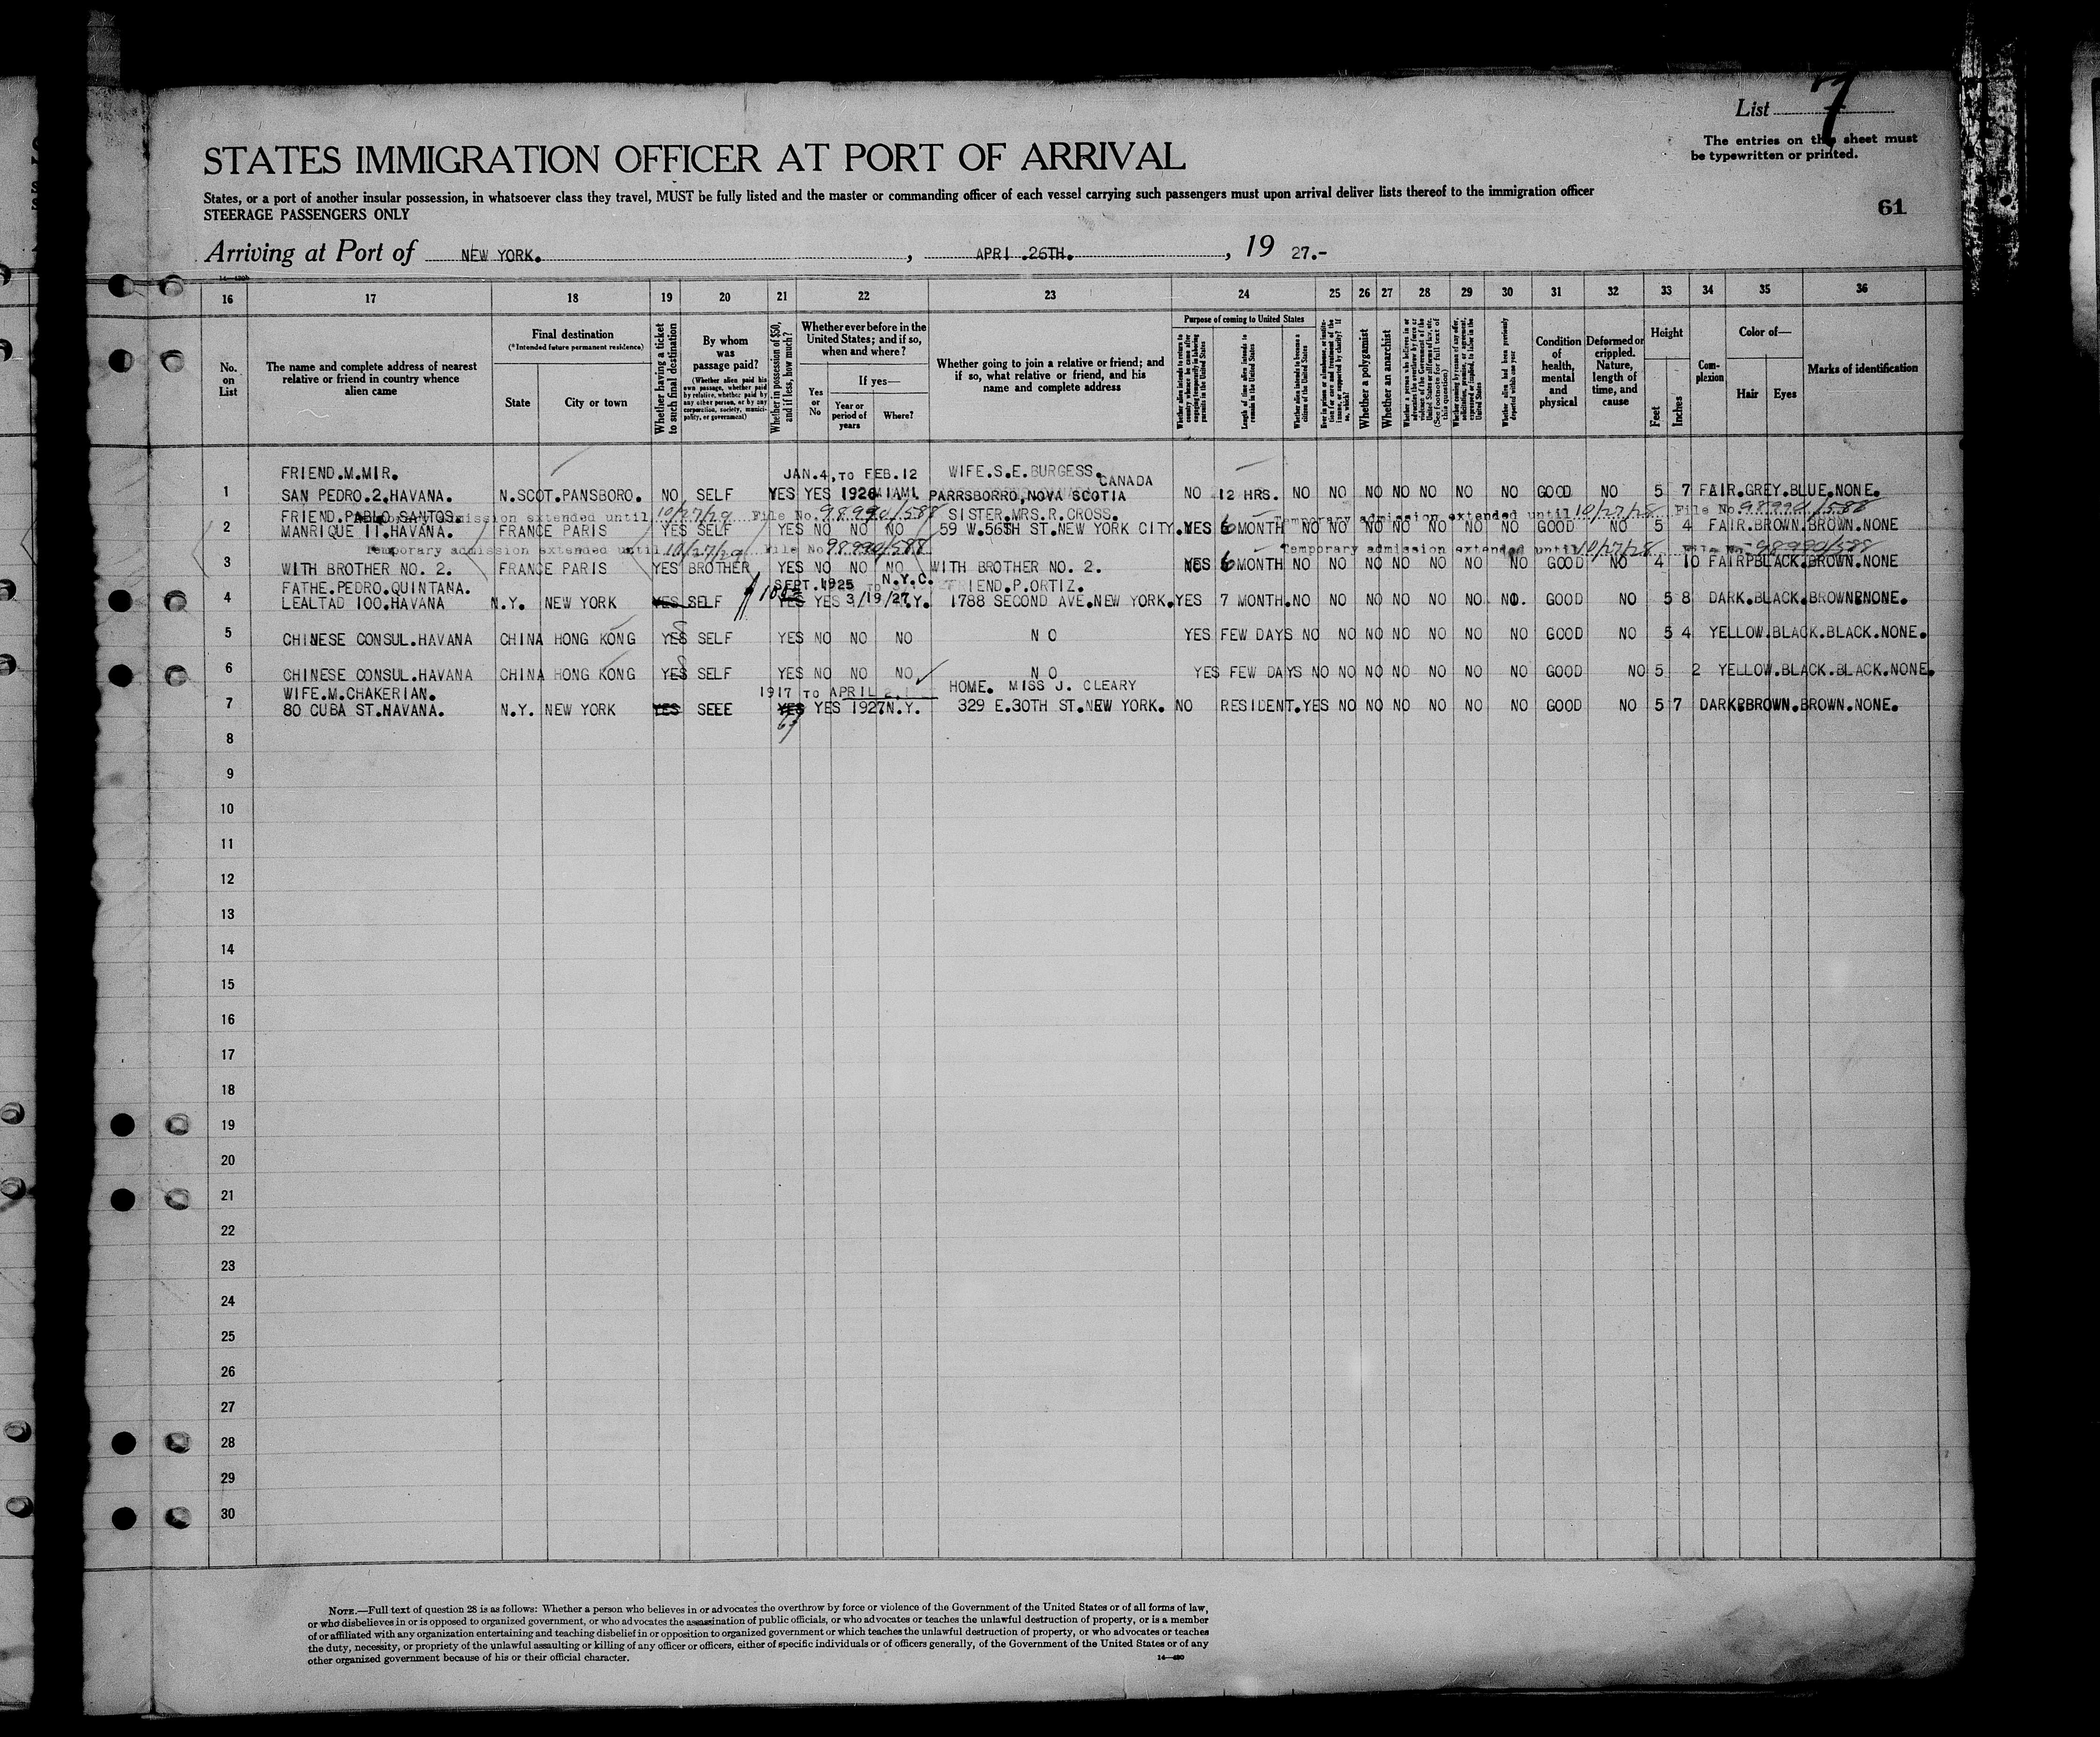 List 7
The entries on this sheet must
be typewritten or printed.
STATES IMMIGRATION OFFICER AT PORT OF ARRIVAL
States, or a port of another insular possession, in whatsoever class they travel, MUST be fully listed and the master or commanding officer of each vessel carrying such passengers must upon arrival deliver lists thereof to the immigration officer
STEERAGE PASSENGERS ONLY
61
Arriving at Port of NEW YORK. , APRI .26TH. , 19 27.-
16 17 18 19 20 21 22 23 24 25 26 27 28 29 30 31 32 33 34 35 36
No. on List
The name and complete address of nearest relative or friend in country whence alien came
Final destination
(*Intended future permanent residence)
State
City or town
Whether having a ticket to such final destination
By whom was passage paid?
(Whether alien paid his own passage, whether paid by relative, whether paid by any other person, or by any corporation, society, municipality, or government)
Whether in possession of $50, and if less, how much?
Whether ever before in the United States; and if so, when and where?
Yes or No
If yes—
Year or period of years
Where?
Whether going to join a relative or friend; and if so, what relative or friend, and his name and complete address
Purpose of coming to United States
Length of time alien intends to remain in the United States
Whether alien intends to become a citizen of the United States
Whether a polygamist
Whether an anarchist
(See footnote for full text of this question)
Whether alien had been previously deported within one year
Condition of health, mental and physical
Deformed or crippled. Nature, length of time, and cause
Height
Feet
Inches
Complexion
Color of—
Hair
Eyes
Marks of identification
FRIEND.M.MIR. JAN.4,TO FEB.12 WIFE.S.E.BURGESS. CANADA
1 SAN PEDRO.2,HAVANA. N.SCOT.PANSBORO. NO SELF YES YES 1926 MIAMI. PARRSBORRO,NOVA SCOTIA NO 12 HRS. NO NO NO NO NO NO NO GOOD NO 5 7 FAIR.GREY.BLUE.NONE.
FRIEND.PABLO SANTOS. SISTER.MRS.R.CROSS.
Temporary admission extended until 10/27/29 File No. 98990/588 Temporary admission extended until 10/27/28 File No. 98990/588
2 MANRIQUE 11.HAVANA. FRANCE PARIS YES SELF YES NO NO NO 59 W.56$H ST.NEW YORK CITY. YES 6 MONTH NO NO NO NO NO NO NO GOOD NO 5 4 FAIR.BROWN.BROWN.NONE
Temporary admission extended until 10/27/29 File No 98990/588 Temporary admission extended until 10/27/28 File No. 98990/588
3 WITH BROTHER NO. 2. FRANCE PARIS YES BROTHER YES NO NO NO WITH BROTHER NO. 2. YES 6 MONTH NO NO NO NO NO NO NO GOOD NO 4 10 FAIRPBLACK.BROWN.NONE
FATHE.PEDRO.QUINTANA. SEPT.1925 TO N.Y.C. FRIEND.P.ORTIZ.
4 LEALTAD 100.HAVANA N.Y. NEW YORK YES SELF YES YES 3/19/27 N.Y. 1788 SECOND AVE.NEW YORK. YES 7 MONTH. NO NO NO NO NO NO NO. GOOD NO 5 8 DARK.BLACK.BROWN.NONE.
5 CHINESE CONSUL.HAVANA CHINA HONG KONG YES SELF YES NO NO NO N O YES FEW DAYS NO NO NO NO NO NO NO GOOD NO 5 4 YELLOW.BLACK.BLACK.NONE.
6 CHINESE CONSUL.HAVANA CHINA HONG KONG YES SELF YES NO NO NO N O YES FEW DAYS NO NO NO NO NO NO NO GOOD NO 5 2 YELLOW.BLACK.BLACK.NONE.
WIFE.M.CHAKERIAN. 1917 TO APRIL 2, HOME. MISS J. CLEARY
7 80 CUBA ST.HAVANA. N.Y. NEW YORK YES SELE YES YES 1927 N.Y. 329 E.30TH ST.NEW YORK. NO RESIDENT. YES NO NO NO NO NO NO GOOD NO 5 7 DARKPBROWN.BROWN.NONE.
67
8
9
10
11
12
13
14
15
16
17
18
19
20
21
22
23
24
25
26
27
28
29
30
NOTE.—Full text of question 28 is as follows: Whether a person who believes in or advocates the overthrow by force or violence of the Government of the United States or of all forms of law,
or who disbelieves in or is opposed to organized government, or who advocates the assassination of public officials, or who advocates or teaches the unlawful destruction of property, or is a member
of or affiliated with any organization entertaining and teaching disbelief in or opposition to organized government or which teaches the unlawful destruction of property, or who advocates or teaches
the duty, necessity, or propriety of the unlawful assaulting or killing of any officer or officers, either of specific individuals or of officers generally, of the Government of the United States or of any
other organized government because of his or their official character.
14—430